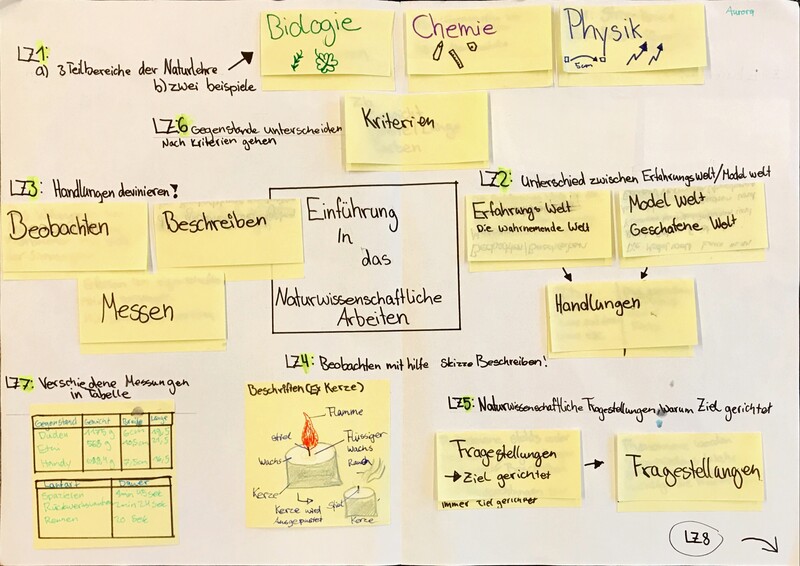 Aurora
LZ1:
a) 3 Teilbereiche der Naturlehre
b) zwei beispiele
Biologie
Chemie
Physik
5cm
LZ6 Gegenstände unterscheiden
Nach Kriterien gehen
Kriterien
LZ3: Handlungen devinieren!
Beobachten
Beschreiben
Messen
Einführung
In
das
Naturwissenschaftliche
Arbeiten
LZ2: Unterschied zwischen Erfahrungswelt/Model welt
Erfahrungs Welt
Die Wahrnemende Welt
Model Welt
Geschafene Welt
Handlungen
LZ7: Verschiedene Messungen
in Tabelle
Gegenstand Gewicht Breite Länge
Duden
Etui
Handy
Laufart Dauer
Spazieren
Rennen 20 Sek
LZ4: Beobachten mit hilfe Skizze Beschreiben!
Beschriften (Ex Kerze)
Flamme
Flüssiger
Wachs
Rauch
Wachs
Kerze
Kerze wird
Ausgepustet
Kerze
LZ5: Naturwissenschaftliche Fragestellungen, Warum Ziel gerichtet
Fragestellungen
→ Ziel gerichtet
immer Ziel gerichtet
Fragestellungen
LZ8